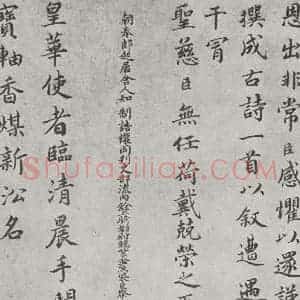 恩出非常臣感懼以遂謹
撰成古詩一首以叙遭遇
干冒
聖慈臣無任荷戴兢榮之至
朝奉郎起居舍人知制誥
皇華使者臨清晨手開
寶軸香煤新沿名
Shufazilian.com